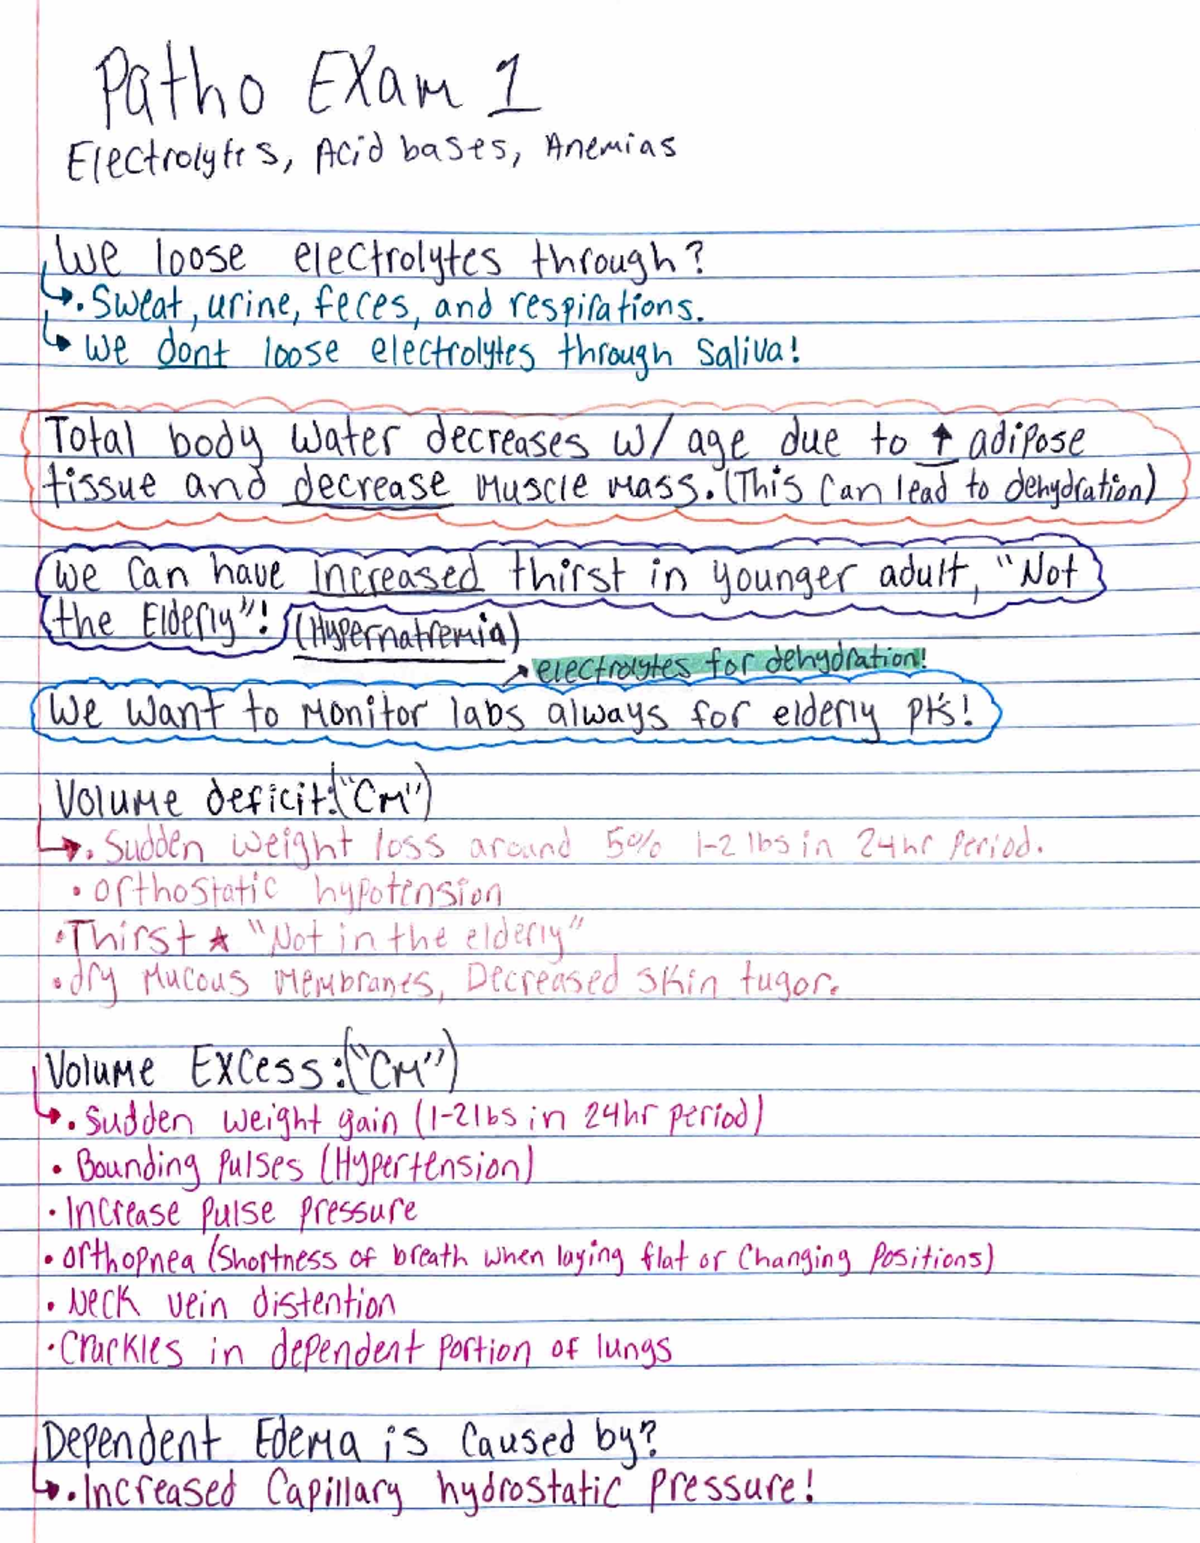 Patho Exam 1
Electrolytes, Acid bases, Anemias
We loose electrolytes through?
↳• Sweat, urine, feces, and respirations.
↳ We dont loose electrolytes through Saliva!
Total body Water decreases w/ age due to ↑ adipose
tissue and decrease muscle mass. (This can lead to dehydration)
We Can have increased thirst in younger adult, "Not
the Elderly"! (Hypernatremia)
↗ electrolytes for dehydration!
We Want to monitor labs always for elderly pt's!
Volume deficit: ("CM")
↳• Sudden weight loss around 5% 1-2 lbs in 24hr Period.
• Orthostatic hypotension
• Thirst ★ "Not in the elderly"
• dry Mucous Membranes, Decreased skin tugor.
Volume Excess: ("CM")
↳• Sudden weight gain (1-2lbs in 24hr period)
• Bounding Pulses (Hypertension)
• Increase pulse pressure
• Orthopnea (Shortness of breath when laying flat or Changing Positions)
• Neck vein distention
• Crackles in dependent portion of lungs
Dependent Edema is Caused by?
↳• Increased Capillary hydrostatic Pressure!